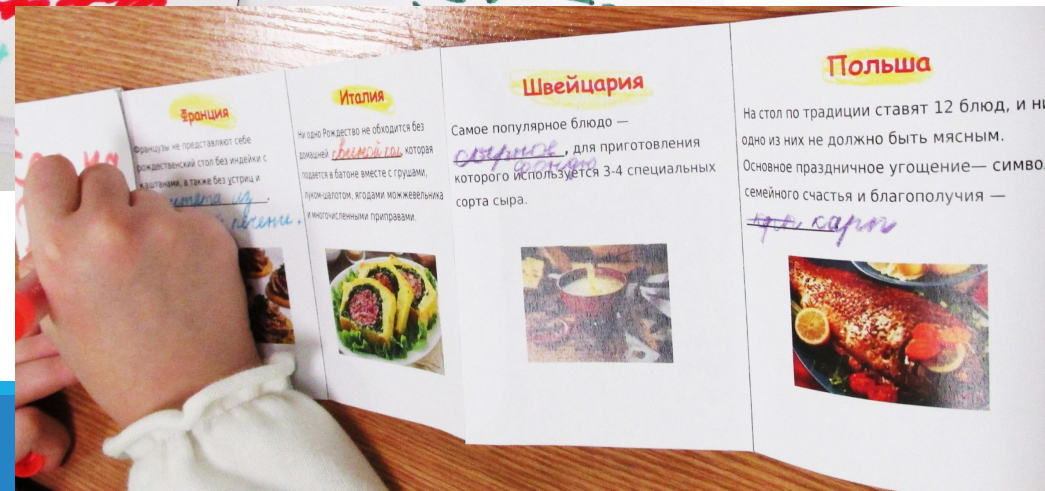 Франция
Французы не представляют себе
рождественский стол без индейки с
каштанами, а также без устриц и
из
печени.
Италия
Ни одно Рождество не обходится без
домашней свиной которая
подается в батоне вместе с грушами,
луком-шалотом, ягодами можжевельника
и многочисленными приправами.
Швейцария
Самое популярное блюдо —
сырное, для приготовления
фондю
которого используется 3-4 специальных
сорта сыра.
Польша
На стол по традиции ставят 12 блюд, и ни
одно из них не должно быть мясным.
Основное праздничное угощение— симво
семейного счастья и благополучия —
карп